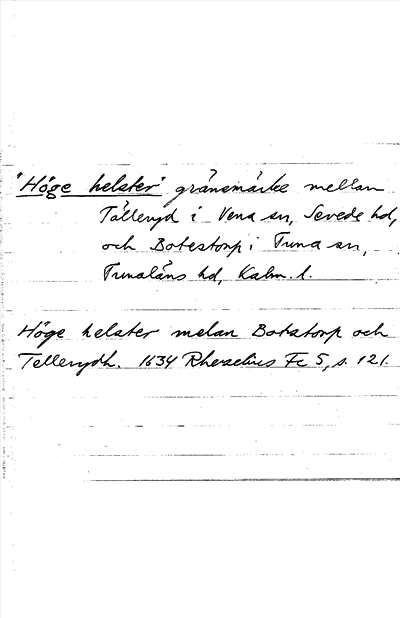 "Höge helster" gränsmärke mellan
Tålleryd i Vena sn, Sevede hd,
och Botestorp i Tuna sn,
Tunaläns hd, Kalm. l.
Höge helster melan Botatorp och
Tellerydh. 1634 Rhezelius Fc 5, s. 121.